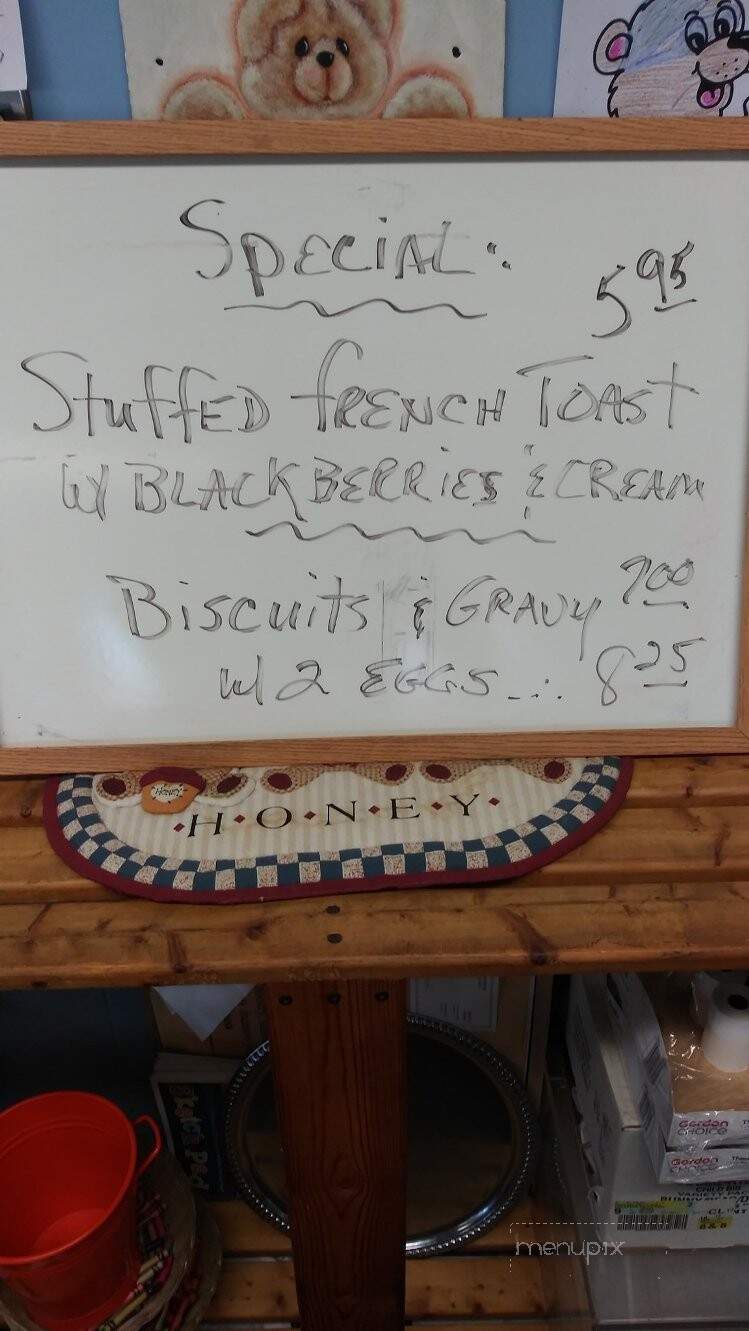 SPECIAL:
5 95
STUFFED FRENCH TOAST
W/ BLACKBERRIES & CREAM
BISCUITS & GRAVY 7 00
W/ 2 EGGS ... 8 25
HONEY
H·O·N·E·Y·
Sketch Pad
Gordon
CHOICE
Gordon
CHOICE
CHILD BIB
VARIETY PA
menupix